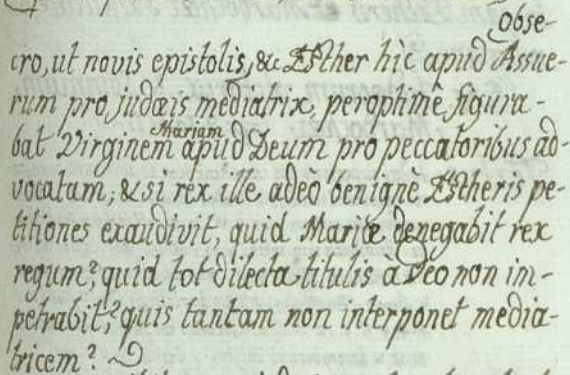 Obse-
cro, ut novis epistolis, &c Esther hic apud Assue-
rum pro judæis mediatrix, peroptimè figura-
bat Virginem Mariam apud Deum pro peccatoribus ad-
vocatam; & si rex ille adeò benignè Estheris pe-
titiones exaudivit, quid Mariæ denegabit rex
regum? quid tot dilecta titulis à Deo non im-
petrabit? quis tantam non interponet media-
tricem?